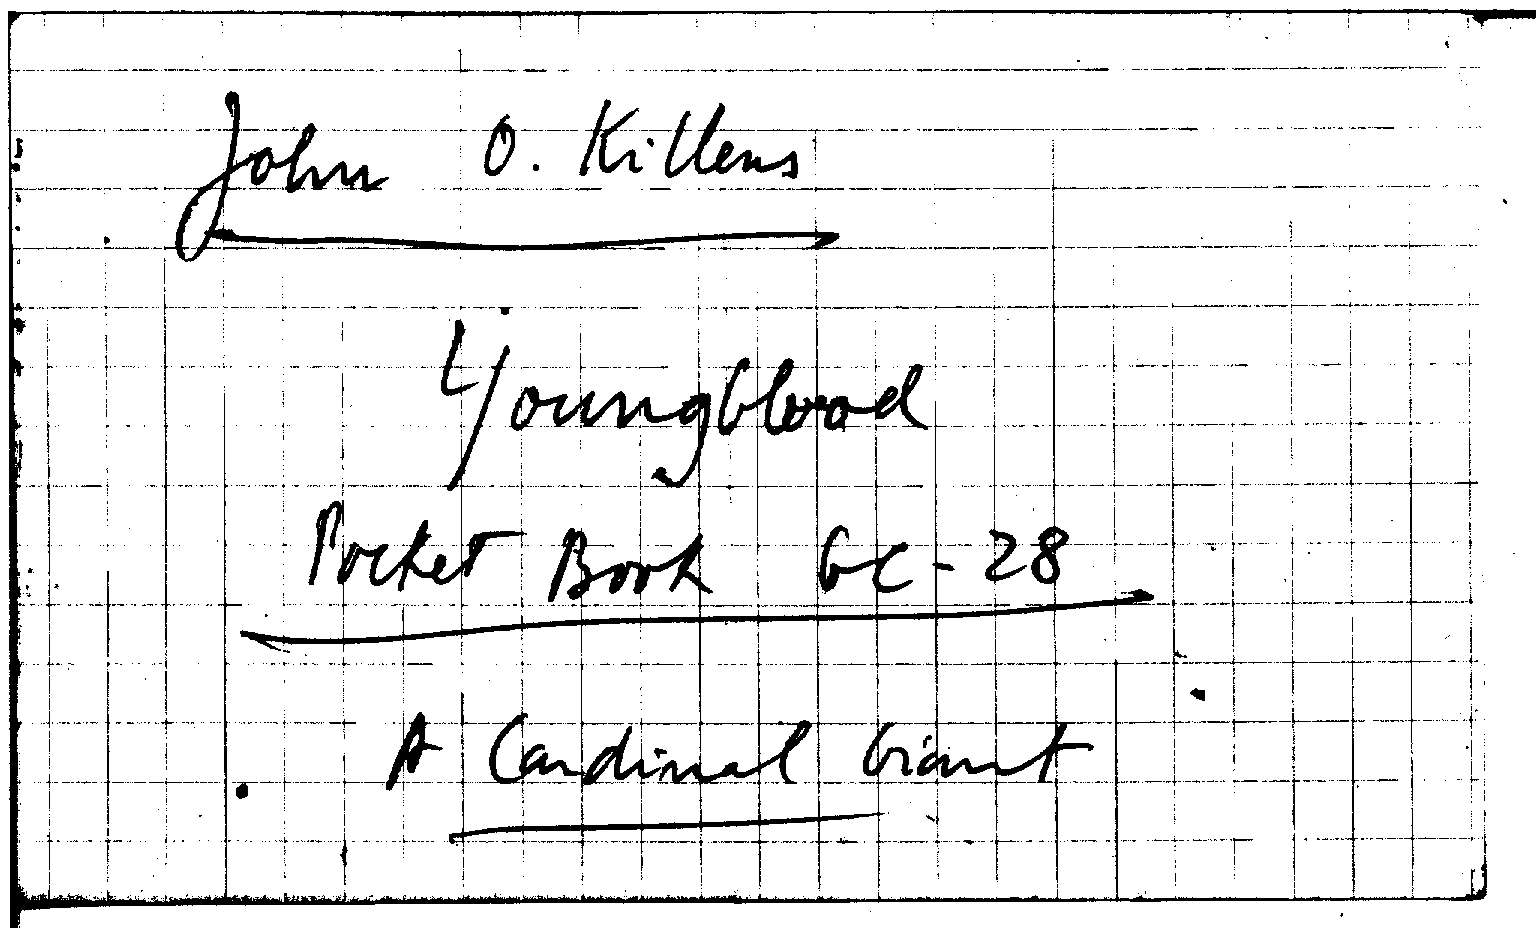 John O. Killens
Youngblood
Pocket Book GC-28
A Cardinal Giant